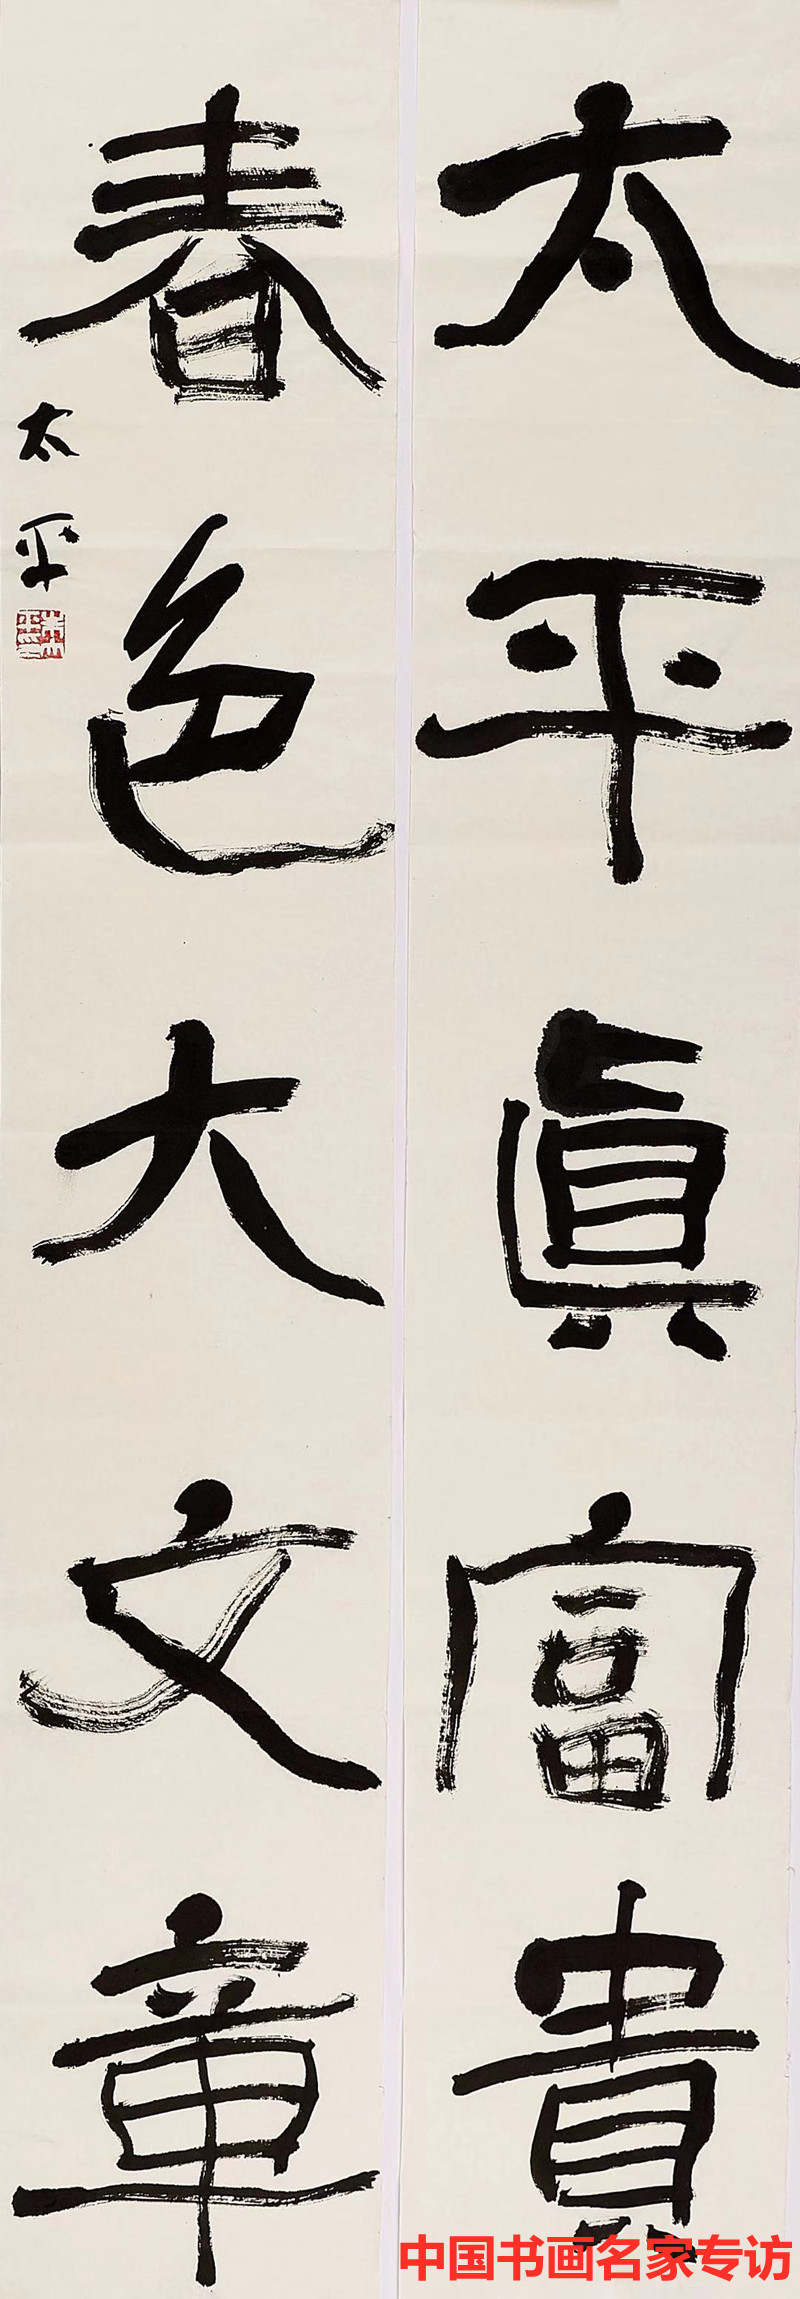 太平眞富貴
春色大文章
太平
中国书画名家专访